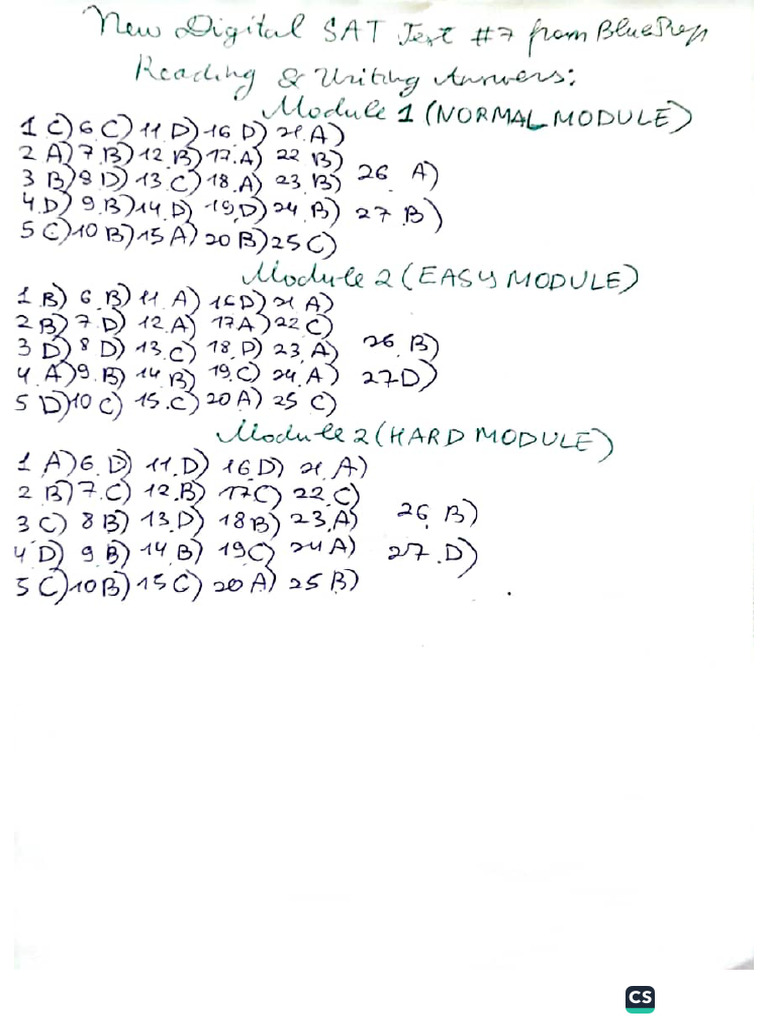 New Digital SAT Test #7 from BluePrep
Reading & Writing Answers:
Module 1 (NORMAL MODULE)
1 C) 6 C) 11 D) 16 D) 21. A)
2 A) 7. B) 12 B) 17. A) 22 B)
3 B) 8 D) 13 C) 18. A) 23. B) 26 A)
4. D) 9. B) 14 D) 19. D) 24. B) 27 B)
5 C) 10 B) 15 A) 20 B) 25 C)
Module 2 (EASY MODULE)
1 B) 6. B) 11 A) 16 D) 21 A)
2 B) 7. D) 12. A) 17 A) 22 C)
3 D) 8 D) 13. C) 18. D) 23. A) 26. B)
4 A) 9. B) 14 B) 19. C) 24. A) 27 D)
5 D) 10 C) 15. C) 20 A) 25 C)
Module 2 (HARD MODULE)
1 A) 6. D) 11. D) 16 D) 21 A)
2 B) 7. C) 12. B) 17 C) 22. C)
3 C) 8 B) 13. D) 18 B) 23. A) 26. B)
4 D) 9. B) 14 B) 19 C) 24 A) 27. D)
5 C) 10 B) 15 C) 20 A) 25 B)
CS